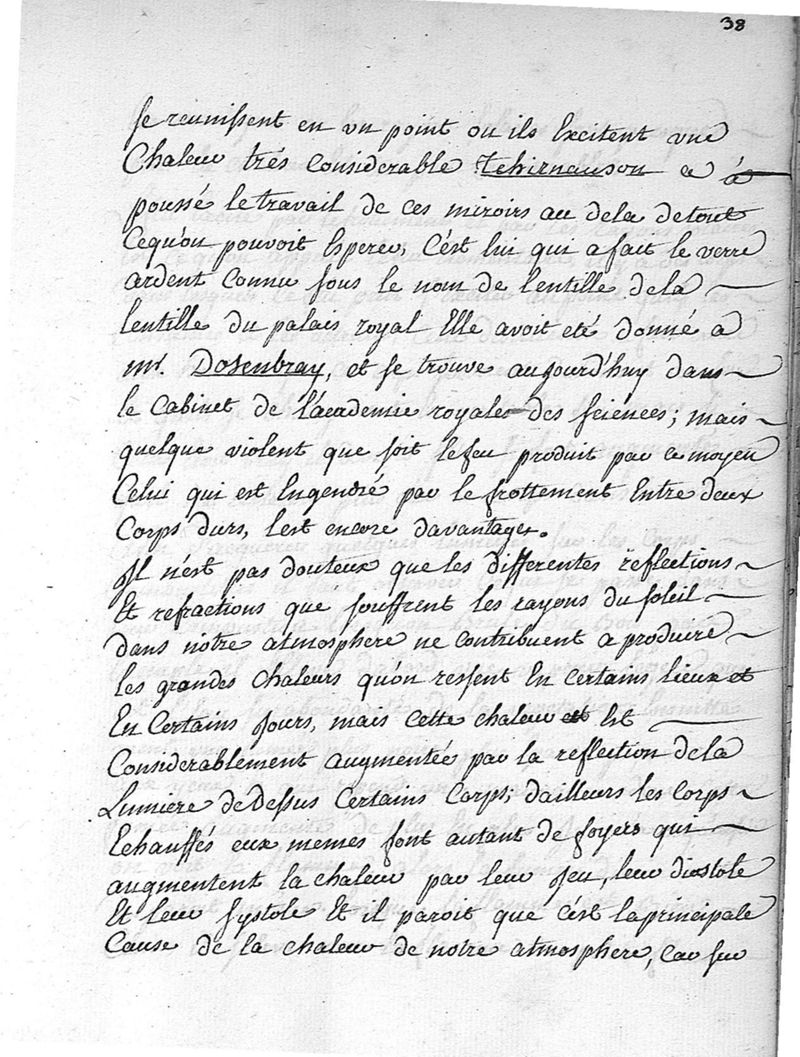 38
se reunissent en un point ou ils Excitent une
Chaleur trés Considerable Tchirnauson a
poussé le travail de ces miroirs au dela detout
Cequ'on pouvoit Esperer, C'est lui qui a fait le verre
ardent Connu sous le nom de lentille dela
lentille du palais royal Elle avoit eté donné a
mr. Dosenbray, et se trouve aujourd'huy dans
le Cabinet de l'academie royale des sciences; mais
quelque violent que soit lefeu produit par ce moyen
Celui qui est Engendré par le frottement Entre deux
Corps durs, l'est encore davantage.
Il n'est pas douteux que les differentes reflections
Et refractions que souffrent les rayons du soleil
dans nôtre atmosphere ne Contribuent a produire
les grandes Chaleurs qu'on ressent En Certains lieux et
En Certains Jours, mais cette chaleur est
Considerablement augmentée par la reflection dela
Lumiere deDessus Certains Corps; dailleurs les Corps
Echauffés eux memes font autant de foyers qui
augmentent la chaleur par leur feu, leur diastole
Et leur systole Et il paroit que c'est laprincipale
Cause de la chaleur de notre atmosphere, car sur